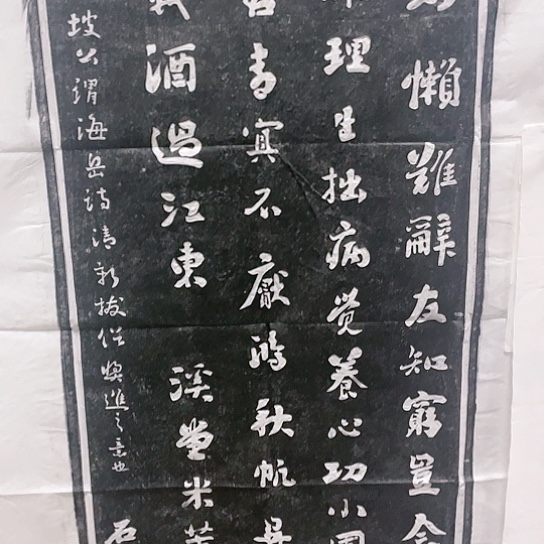 懶難辭友知窮豈念
理生拙病覺養心功小圃
客青冥不厭鴻秋帆尋
載酒過江東 溪堂米芾
坡公謂海岳詩清新拔俗進之意也
石